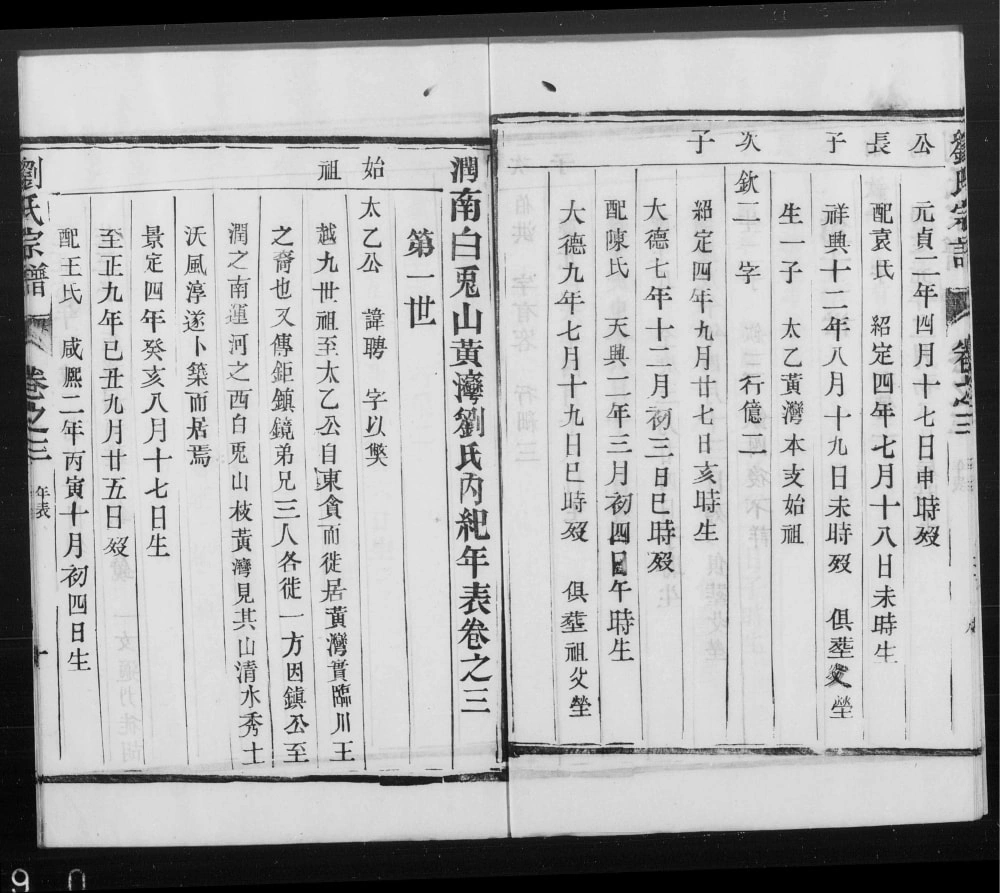 劉氏宗譜 卷之三
公 元貞一年四月十七日申時殁
長 配袁氏 紹定四年七月十八日未時生
子 祥興十二年八月十九日未時殁 俱塟父塋
生一子 太乙黃灣本支始祖
次 欽二 字 行億一
子 紹定四年九月廿七日亥時生
大德七年十二月初三日巳時殁
配陳氏 天興二年三月初四日午時生
大德九年七月十九日巳時殁 俱塟祖父塋
潤南白兎山黃灣劉氏內紀年表卷之三
第一世
始 太乙公 諱聘 字以獎
祖 越九世祖至太乙公自東貪而徙居黃灣實臨川王
之裔也又傳鉅鎮鏡弟兄三人各徙一方因鎮公至
潤之南運河之西白兎山枝黃灣見其山清水秀土
沃風淳遂卜築而居焉
景定四年癸亥八月十七日生
至正九年己丑九月廿五日殁
配王氏 咸熈二年丙寅十月初四日生
劉氏宗譜 卷之三 年表 十
9 0